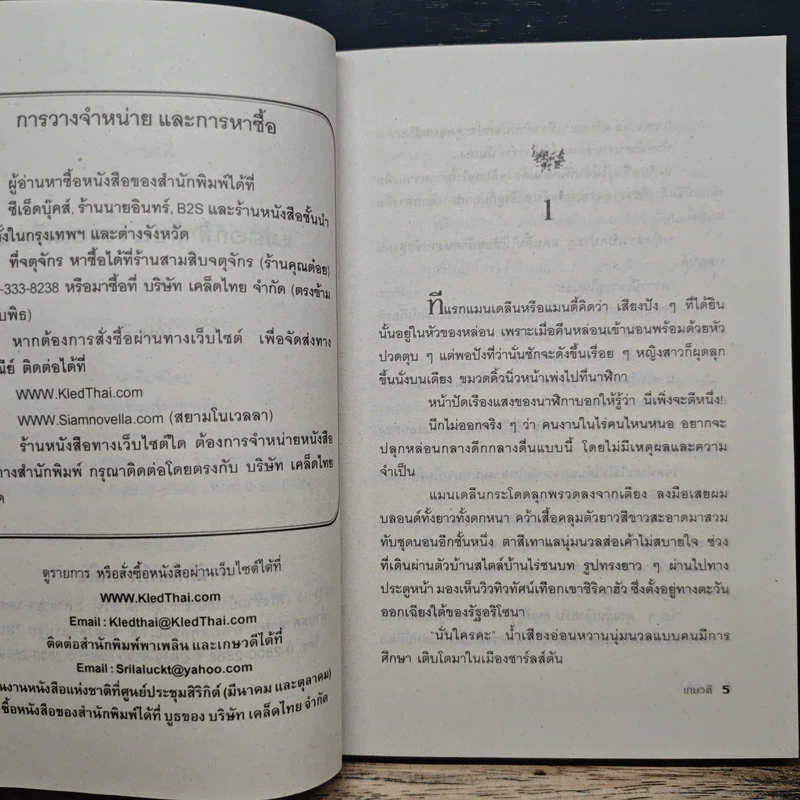 การวางจำหน่าย และการหาซื้อ
ผู้อ่านหาซื้อหนังสือของสำนักพิมพ์ได้ที่
ซีเอ็ดบุ๊คส์, ร้านนายอินทร์, B2S และร้านหนังสือชั้นนำ
ทั้งในกรุงเทพฯ และต่างจังหวัด
ที่จตุจักร หาซื้อได้ที่ร้านสามสิบจตุจักร (ร้านคุณต๋อย)
-333-8238 หรือมาซื้อที่ บริษัท เคล็ดไทย จำกัด (ตรงข้าม
บพิธ)
หากต้องการสั่งซื้อผ่านทางเว็บไซต์ เพื่อจัดส่งทาง
ณีย์ ติดต่อได้ที่
WWW.KledThai.com
WWW.Siamnovella.com (สยามโนเวลลา)
ร้านหนังสือทางเว็บไซต์ใด ต้องการจำหน่ายหนังสือ
ทางสำนักพิมพ์ กรุณาติดต่อโดยตรงกับ บริษัท เคล็ดไทย
ด
ดูรายการ หรือสั่งซื้อหนังสือผ่านเว็บไซต์ได้ที่
WWW.KledThai.com
Email : Kledthai@KledThai.com
ติดต่อสำนักพิมพ์พาเพลิน และเกษวดีได้ที่
Email : Srilaluckt@yahoo.com
นงานหนังสือแห่งชาติที่ศูนย์ประชุมสิริกิติ์ (มีนาคม และตุลาคม)
ซื้อหนังสือของสำนักพิมพ์ได้ที่ บูธของ บริษัท เคล็ดไทย จำกัด
1
ทีแรกแมนเดลีนหรือแมนดี้คิดว่า เสียงปัง ๆ ที่ได้ยิน
นั้นอยู่ในหัวของหล่อน เพราะเมื่อคืนหล่อนเข้านอนพร้อมด้วยหัว
ปวดตุบ ๆ แต่พอปังที่ว่านั่นชักจะดังขึ้นเรื่อย ๆ หญิงสาวก็ผุดลุก
ขึ้นนั่งบนเตียง ขมวดคิ้วนิ่วหน้าเพ่งไปที่นาฬิกา
หน้าปัดเรืองแสงของนาฬิกาบอกให้รู้ว่า นี่เพิ่งจะตีหนึ่ง!
นึกไม่ออกจริง ๆ ว่า คนงานในไร่คนไหนหนอ อยากจะ
ปลุกหล่อนกลางดึกกลางดื่นแบบนี้ โดยไม่มีเหตุผลและความ
จำเป็น
แมนเดลีนกระโดดลุกพรวดลงจากเตียง ลงมือเสยผม
บลอนด์ทั้งยาวทั้งดกหนา คว้าเสื้อคลุมตัวยาวสีขาวสะอาดมาสวม
ทับชุดนอนอีกชั้นหนึ่ง ตาสีเทาแลนุ่มนวลส่อเค้าไม่สบายใจ ช่วง
ที่เดินผ่านตัวบ้านสไตล์บ้านไร่ชนบท รูปทรงยาว ๆ ผ่านไปทาง
ประตูหน้า มองเห็นวิวทิวทัศน์เทือกเขาชิริคาฮัว ซึ่งตั้งอยู่ทางตะวัน
ออกเฉียงใต้ของรัฐอริโซนา
“นั่นใครคะ” น้ำเสียงอ่อนหวานนุ่มนวลแบบคนมีการ
ศึกษา เติบโตมาในเมืองชาร์ลส์ตัน
เกษวดี 5